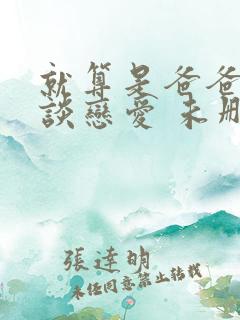 就算是爸爸
談戀愛 未刪
張達明
未经同意禁止转载